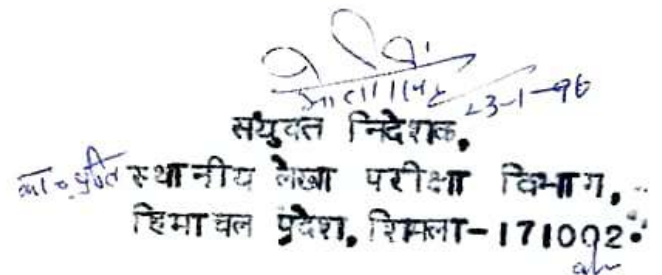 23-1-96
संयुक्त निदेशक,
स्थानीय लेखा परीक्षा विभाग,
हिमाचल प्रदेश, शिमला-171002.